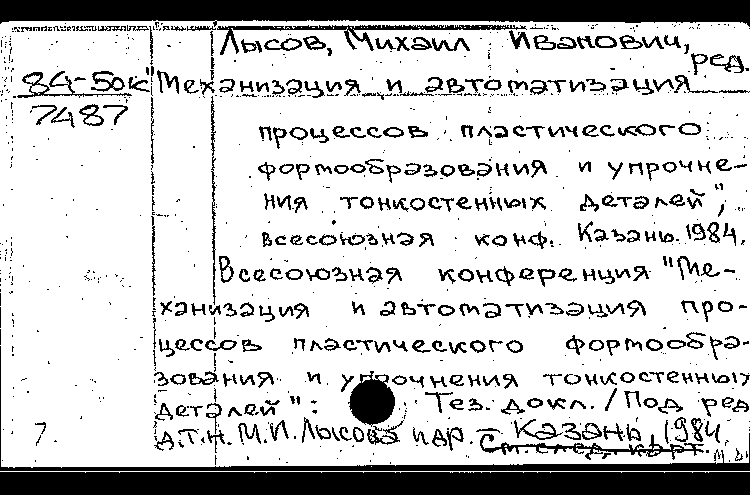 Лысов, Михаил Иванович, ред.
84-50к "Механизация и автоматизация
7487
процессов пластического
формообразования и упрочне-
ния тонкостенных деталей",
всесоюзная конф. Казань. 1984.
Всесоюзная конференция "Ме-
ханизация и автоматизация про-
цессов пластического формообра-
зования и упрочнения тонкостенных
деталей": Тез. докл. / Под ред
7. д.т.н. М.И. Лысова и др. – Казань, 1984.
См. след. карт.